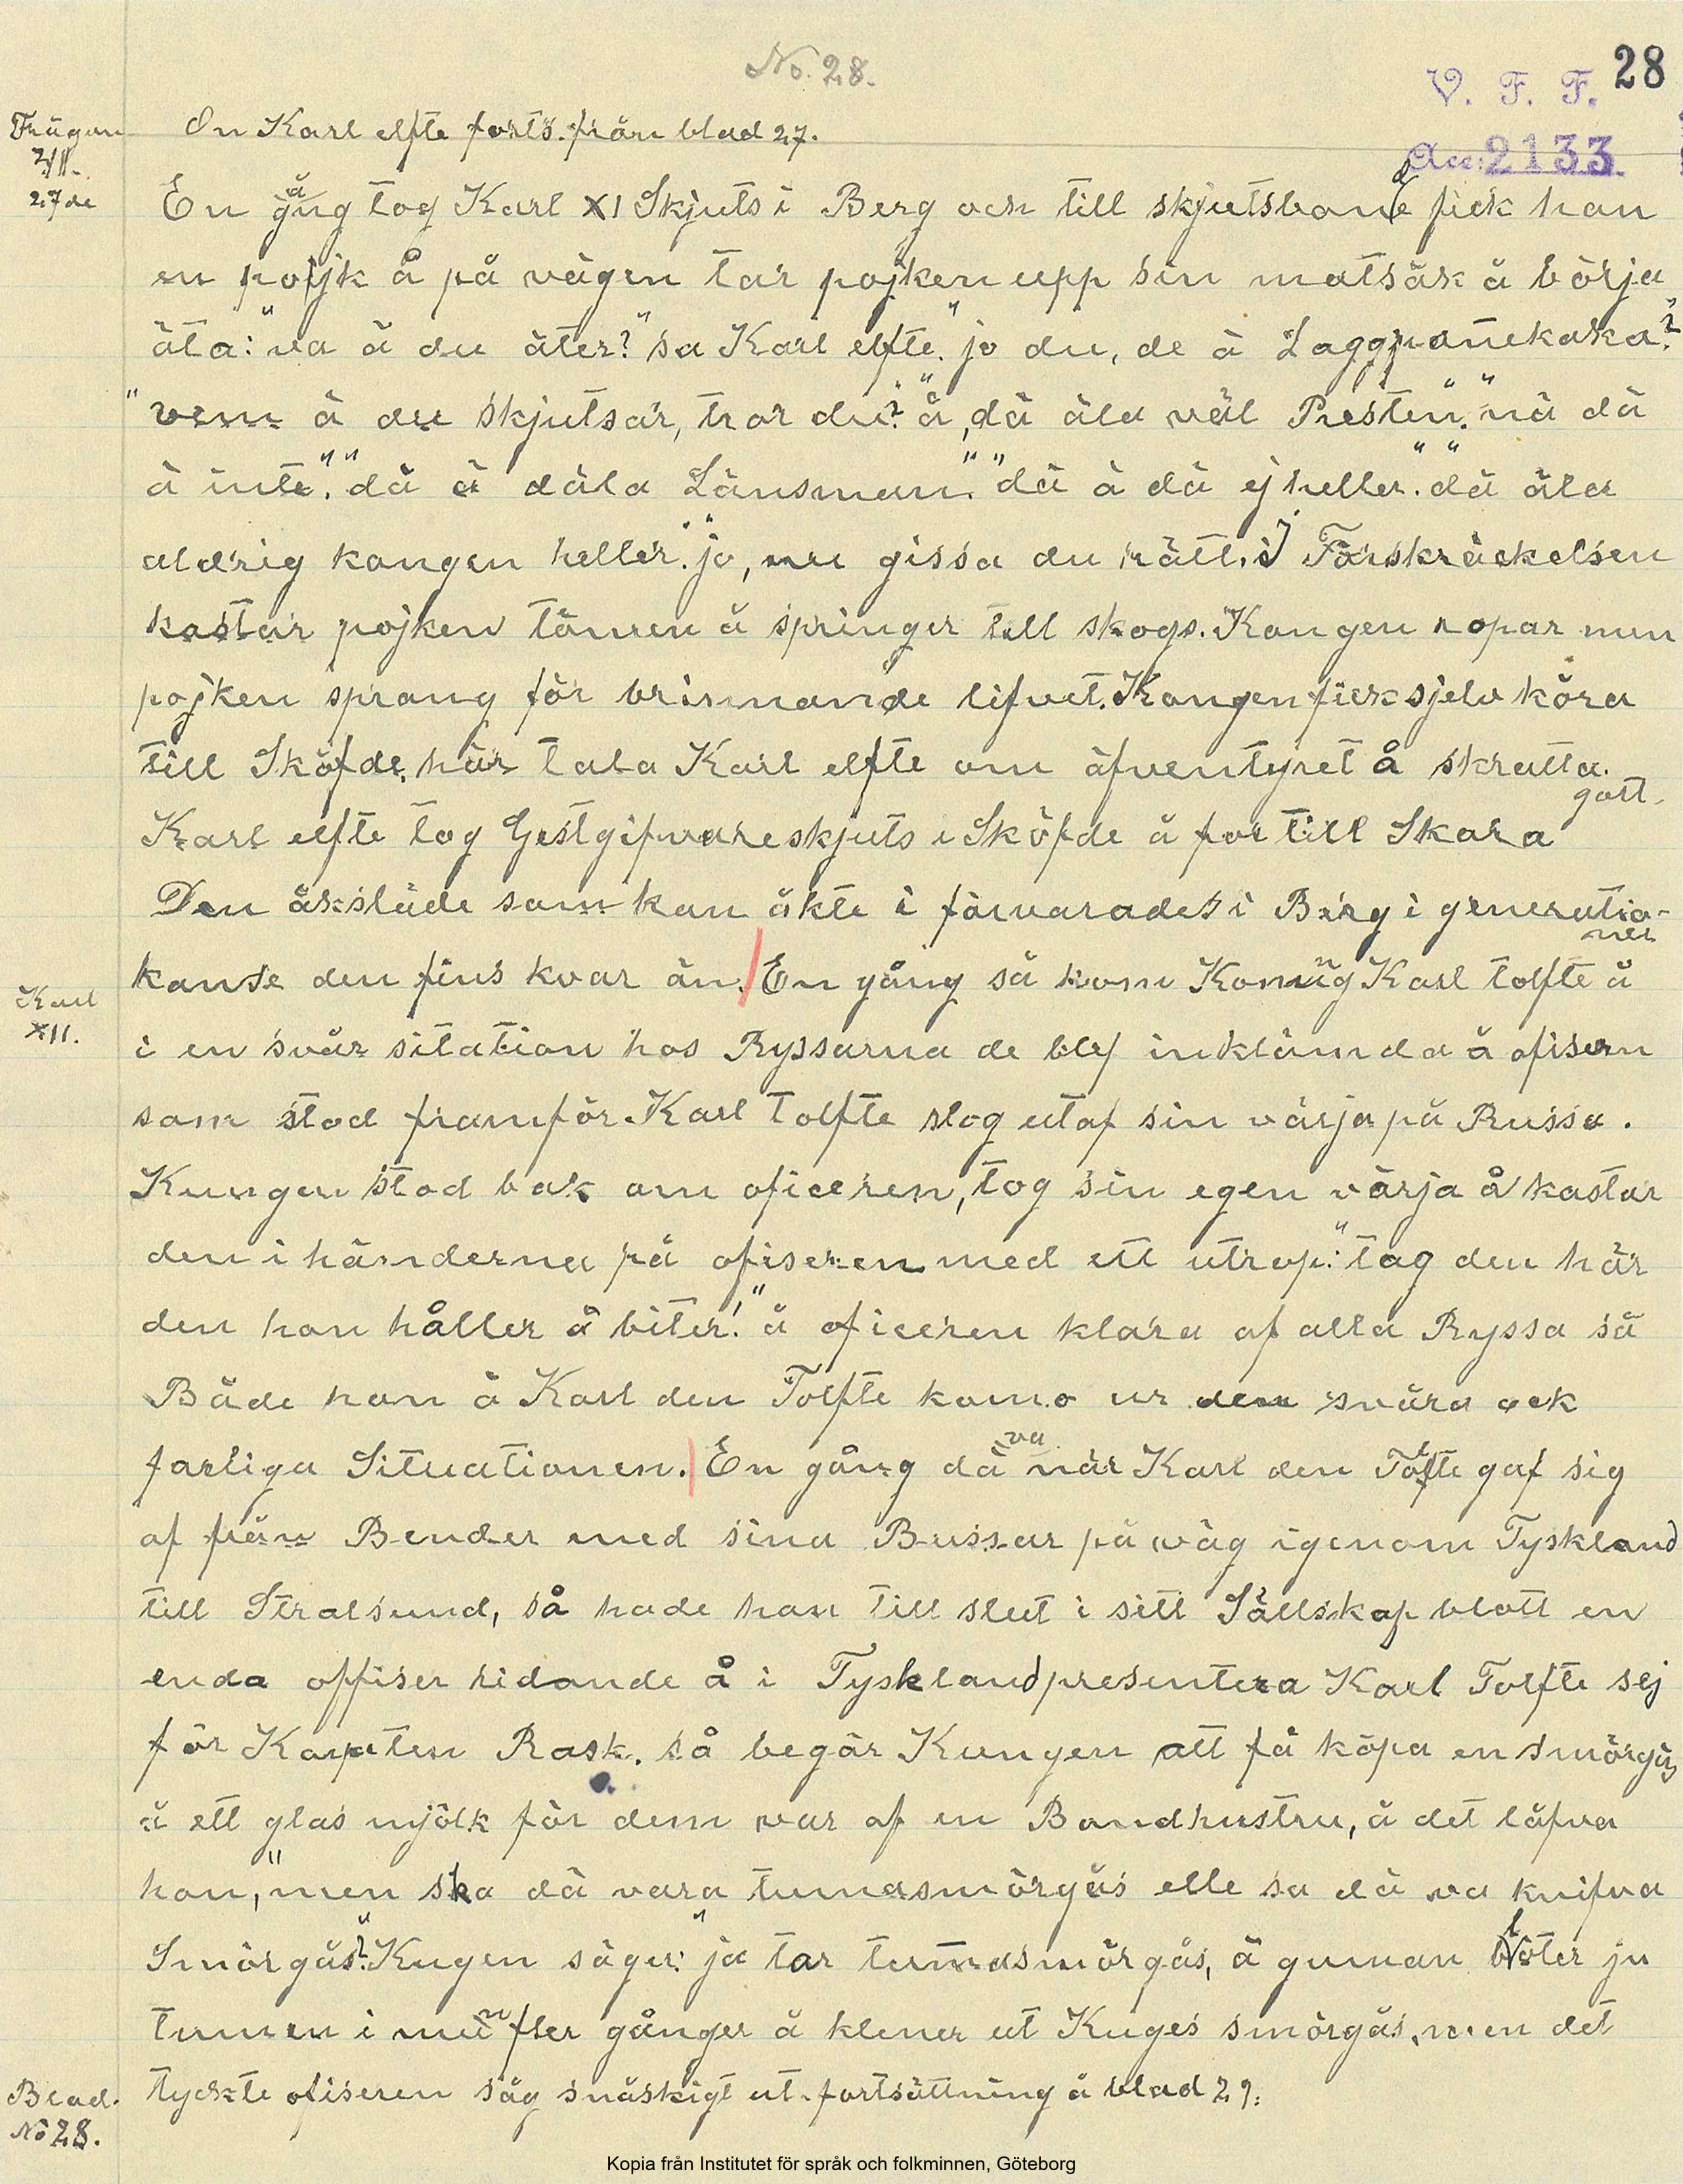 No. 28.
28
V. F. F.
Acc: 2133.
Frågan
27de
Om Karl elfte forts. från blad 27.
En gång tog Karl XI Skjuts i Berg och till skjutsbonde fick han
en pojjk å på vägen tar pojken upp sin matsäk å börja
äta: "va ä du äter?" sa Karl elfte. "jo du, de ä Laggpanekaka?
"vem ä du skjutsar, tror du? "å, dä äla väl Presten." "nä dä
ä inte." "dä ä däla Länsman." "dä ä dä ej heller." "dä äla
aldrig kongen heller." "jo, nu gissa du rätt. I Förskräckelsen
kastar pojken tömen å springer till skogs. Kongen ropar men
pojken sprang för brinnande lifvet. Kongen fick sjelv köra
till Sköfde, här tala Karl elfte om äfventyret å skratta
gott.
Karl elfte tog Gestgifvareskjuts i Sköfde å for till Skara
Den åksläde som han åkte i förvarades i Berg i generatio-
ner
kanse den fins kvar än. En gång så kom Konung Karl tolfte å
Karl
XII.
i en svår sitation hos Ryssarna de blef inklämda å ofisern
som stod framför Karl Tolfte slog utaf sin värja på Russa.
Kungen stod bak om oficeren, tog sin egen värja å kastar
den i händerna på ofiseren med ett utrop: "tag den här
den hon håller å biter!" å oficeren klara af alla Ryssa så
Både han å Karl den Tolfte kom o ur den svåra ock
farliga Situationen. En gång dä va när Karl den Tolfte gaf sig
af från Bender med sina Bussar på väg igenom Tyskland
till Stralsund, så hade han till slut i sitt Sällskap blott en
enda offiser ridande å i Tyskland presentera Karl Tolfte sej
för Kapten Rask. så begär Kungen att få köpa en smörgås
å ett glas mjölk för dem var af en Bondhustru, å det låfva
hon, "men ska dä vara tumasmörgås elle sa dä va knifva
Smörgås?" Kugen säger: "ja tar tumasmörgås, å guman blöter ju
tumen i mun fler gånger å klener ut Kuges smörgås, men det
tyckte ofiseren såg snäskigt ut. fortsättning å blad 29.
Blad.
No 28.
Kopia från Institutet för språk och folkminnen, Göteborg